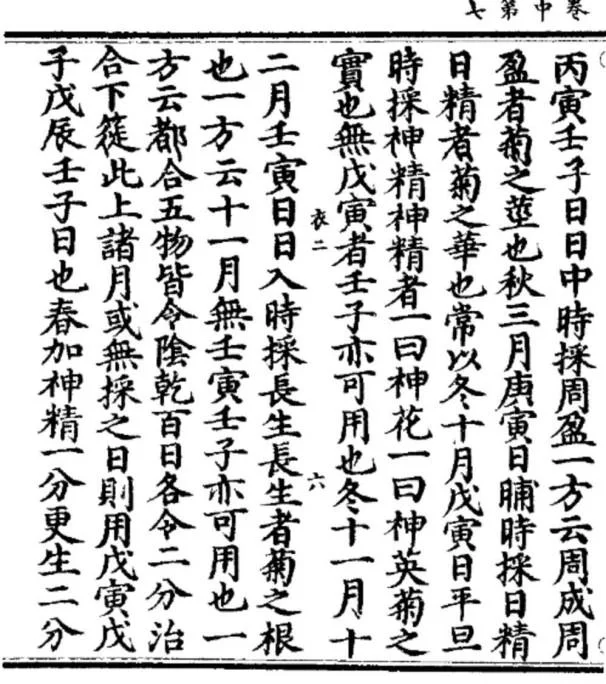 卷中第七
丙寅壬子日日中時採周盈一方云周成周
盈者菊之莖也秋三月庚寅日晡時採日精
日精者菊之華也常以冬十月戊寅日平旦
時採神精神精者一曰神花一曰神英菊之
實也無戊寅者壬子亦可用也冬十一月十
衣二
六
二月壬寅日日入時採長生長生者菊之根
也一方云十一月無壬寅壬子亦可用也一
方云都合五物皆令陰乾百日各令二分治
合下篵此上諸月或無採之日則用戊寅戊
子戊辰壬子日也春加神精一分更生二分